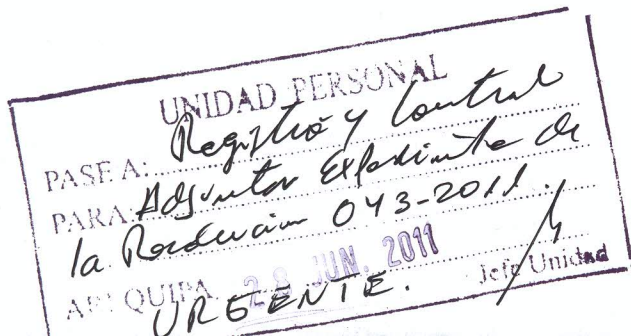 UNIDAD PERSONAL
PASE A: Registro y Control
PARA: Adjuntar Expediente de
la Resolución 043-2011.
AREQUIPA, 28 JUN. 2011
URGENTE.
Jefe Unidad